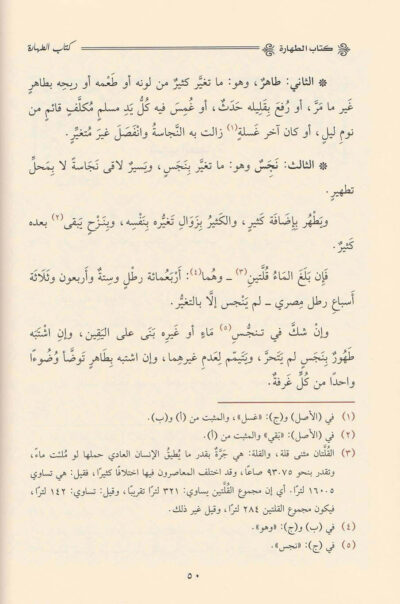 كتاب الطهارة
كتاب الطهارة
الثاني: طاهرٌ، وهو: ما تغيَّر كثيرٌ من لونه أو طَعْمه أو ريحِه بطاهرٍ
غَير ما مَرَّ، أو رُفِعَ بِقَلِيله حَدَثٌ، أو غُمِسَ فيه كُلُّ يَدِ مسلمٍ مكلَّفٍ قائمٍ من
نومِ ليلٍ، أو كان آخر غَسلةٍ(١) زالت به النَّجاسةُ وانْفَصَلَ غيرَ مُتَغيِّرٍ.
الثالث: نَجِسٌ وهو: ما تغيَّر بنَجَسٍ، ويَسيرٌ لاقى نَجَاسةً لا بِمَحلِّ
تطهيرٍ.
ويَطْهُر بِإضَافَة كَثيرٍ، والكَثيرُ بِزَوَالِ تَغَيُّره بنَفْسِه، وبِنَزْحٍ يَبقى(٢) بعده
كَثيرٌ.
فَإن بَلَغَ المَاءُ قُلَّتينِ(٣) ـ وهُما(٤): أَرْبَعُمائة رطْلٍ وستةٌ وأربعون وثَلَاثَة
أَسباعِ رطل مِصري ـ لم يَنْجس إلَّا بالتغيُّر.
وإنْ شكَّ في تـنجُّسِ(٥) مَاءٍ أو غَيرِه بَنَى على اليَقِين، وإنِ اشْتَبَه
طَهُورٌ بِنَجَسٍ لم يَتَحرَّ، ويَتَيمّم لِعَدمِ غيرهِما، وإن اشتبه بِطَاهرٍ تَوضَّأ وُضُوءًا
واحدًا من كُلٍّ غَرفةٌ.
(١) في (الأصل) و(ج): «غسل»، والمثبت من (أ) و(ب).
(٢) في (الأصل): «بَقي» والمثبت من (أ).
(٣) القُلَّتان مثنى قلة، والقلة: هي جَرَّةٌ بقدر ما يُطيقُ الإنسان العادي حملها لو مُلئت ماءً،
وتقدر بنحو ٩٣٠٧٥ صاعًا، وقد اختلف المعاصرون فيها اختلافًا كثيرًا، فقيل: هي تساوي
١٦٠٠٥ لترًا. أي إن مجموع القُلَّتين يساوي: ٣٢١ لترًا تقريبًا، وقيل: تساوي: ١٤٢ لترًا،
فيكون مجموع القلتين ٢٨٤ لترًا، وقيل غير ذلك.
(٤) في (ب) و(ج): «وهو».
(٥) في (ج): «نجس».
٥٠